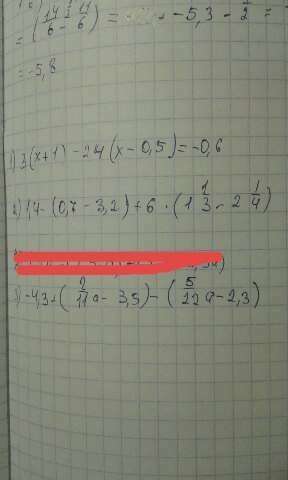 = (14/6 - 11/6) = -5,3 - 1/2 =
= -5,8
1) 3(x+1) - 2,4(x-0,5) = -0,6
2) 1,4 - (0,7 - 3,2) + 6 · (1 1/3 - 2 1/4)
3) -4,3 + (2/11 a - 3,5) - (5/22 a - 2,3)